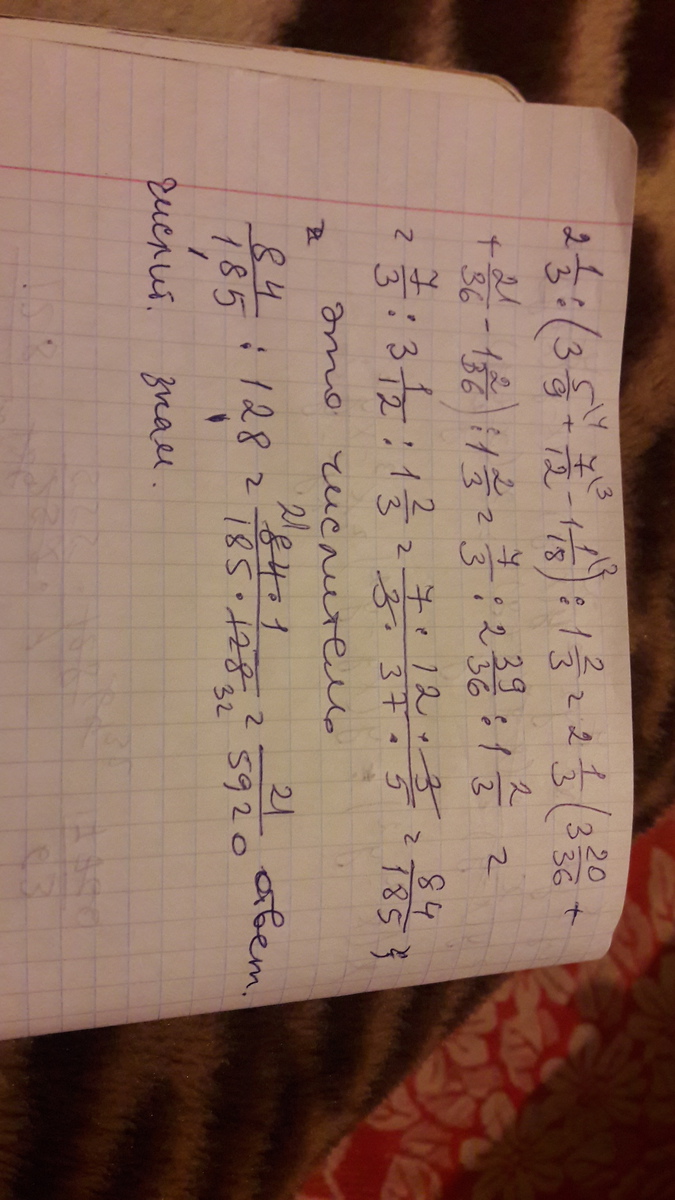 2 1/3 : (3 5/9\4 + 7/12\3 - 1 1/18\2) : 1 2/3 = 2 1/3 (3 20/36 +
+ 21/36 - 1 2/36) : 1 2/3 = 7/3 : 2 39/36 : 1 2/3 =
= 7/3 : 3 1/12 : 1 2/3 = 7 · 12 · 3 / 3 · 37 · 5 = 84/185 }
это числитель
84/185 : 128 = 84 · 1 / 185 · 128 = 21/5920 ответ.
21
32
числит. знам.